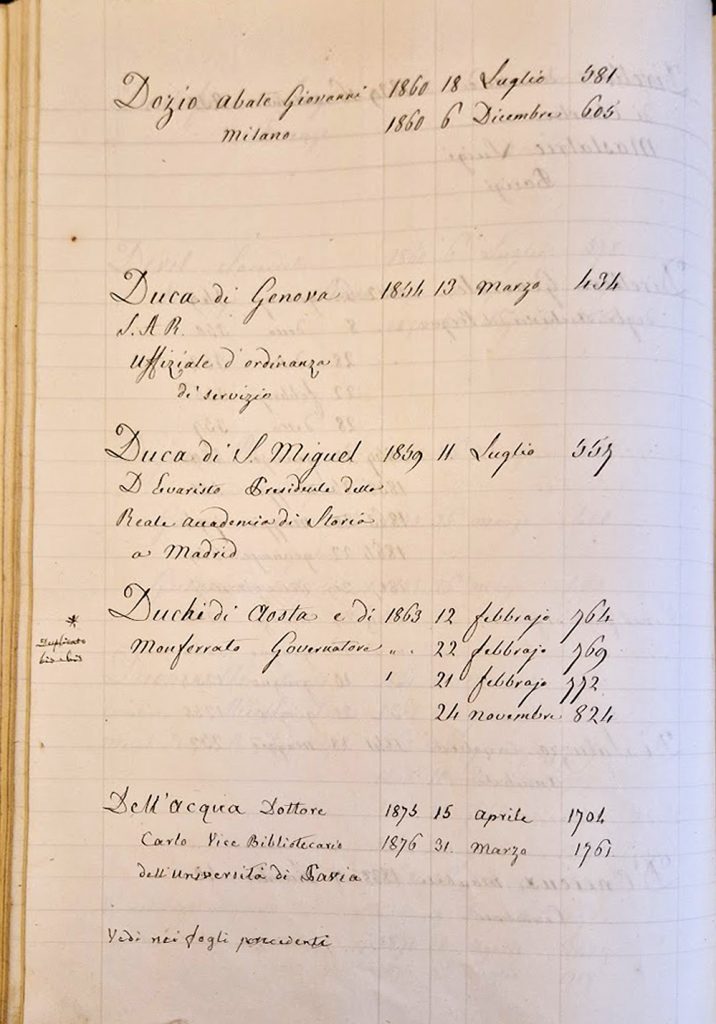 Dozio abate Giovanni 1860 18 Luglio 581
Milano 1860 6 Dicembre 605
Duca di Genova 1854 13 Marzo 434
S. A. R.
Uffiziale d'ordinanza
di servizio
Duca di S. Miguel 1859 11 Luglio 557
D Evaristo Presidente della
Reale Academia di Storia
a Madrid
Duchi di Aosta e di 1863 12 febbrajo 764
* Duplicato
Monferrato Governatore " " 22 febbrajo 769
21 febbrajo 772
24 novembre 824
Dell'acqua Dottore 1875 15 aprile 1704
Carlo Vice Bibliotecario 1876 31 Marzo 1761
dell'Università di Pavia
Vedi nei fogli precedenti